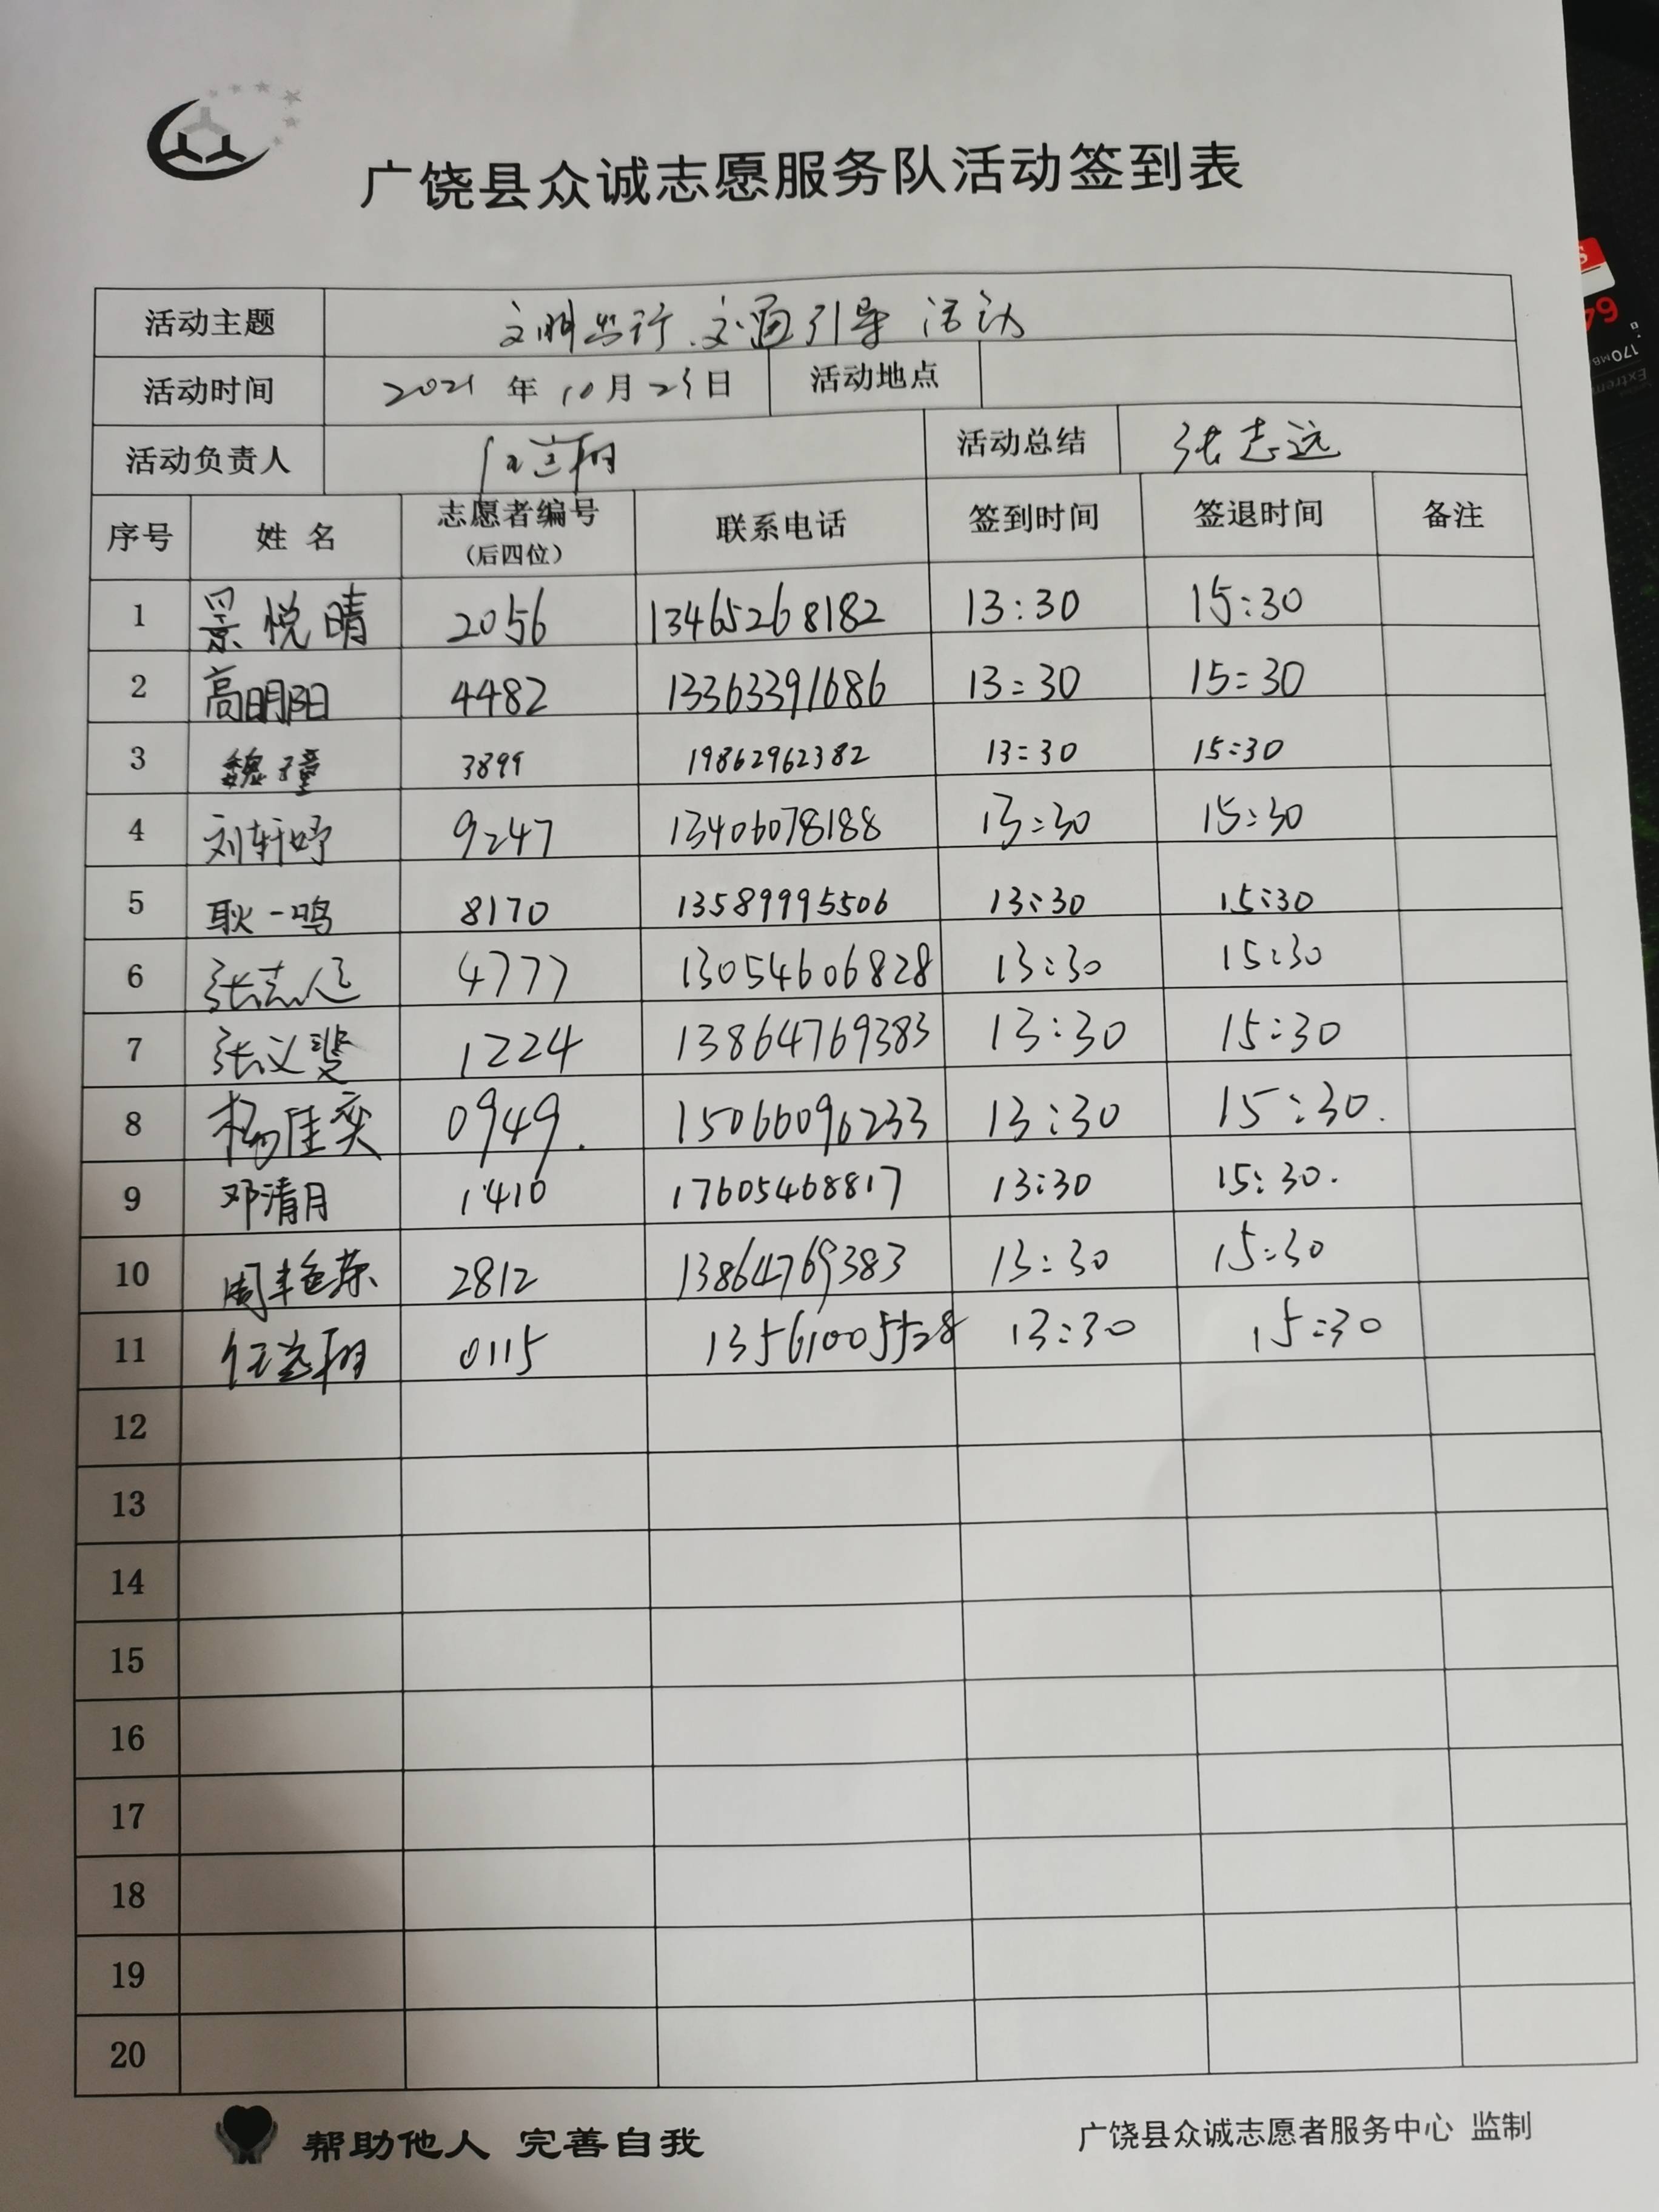 广饶县众诚志愿服务队活动签到表
活动主题 文明出行.交通引导 活动
活动时间 2021 年 10月 23日 活动地点
活动负责人 活动总结 张志远
序号 姓 名 志愿者编号 (后四位) 联系电话 签到时间 签退时间 备注
1 景悦晴 2056 13465268182 13:30 15:30
2 高明阳 4482 13363391686 13:30 15:30
3 魏瞳 3899 19862962382 13:30 15:30
4 刘轩妤 9247 13406078188 13:30 15:30
5 耿一鸣 8170 13589995506 13:30 15:30
6 张志远 4777 13054606828 13:30 15:30
7 张义斐 1224 13864769383 13:30 15:30
8 杨佳奕 0949. 15066096233 13:30 15:30.
9 邓清月 1410 17605468817 13:30 15:30.
10 周艳荣 2812 13864769383 13:30 15:30
11 0115 13561005528 13:30 15:30
12
13
14
15
16
17
18
19
20
帮助他人 完善自我
广饶县众诚志愿者服务中心 监制